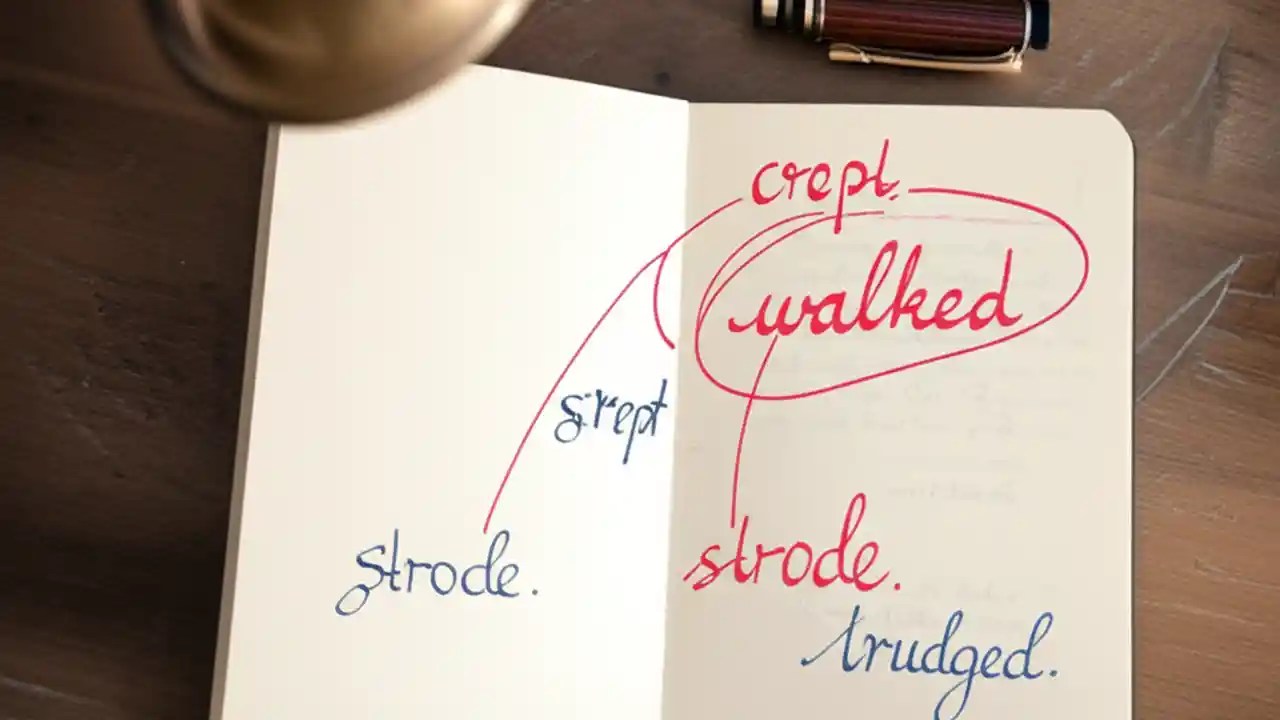 crept.
walked
srept
strode.
strode.
trudged.